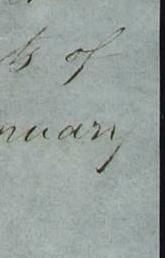 ts of
nuary